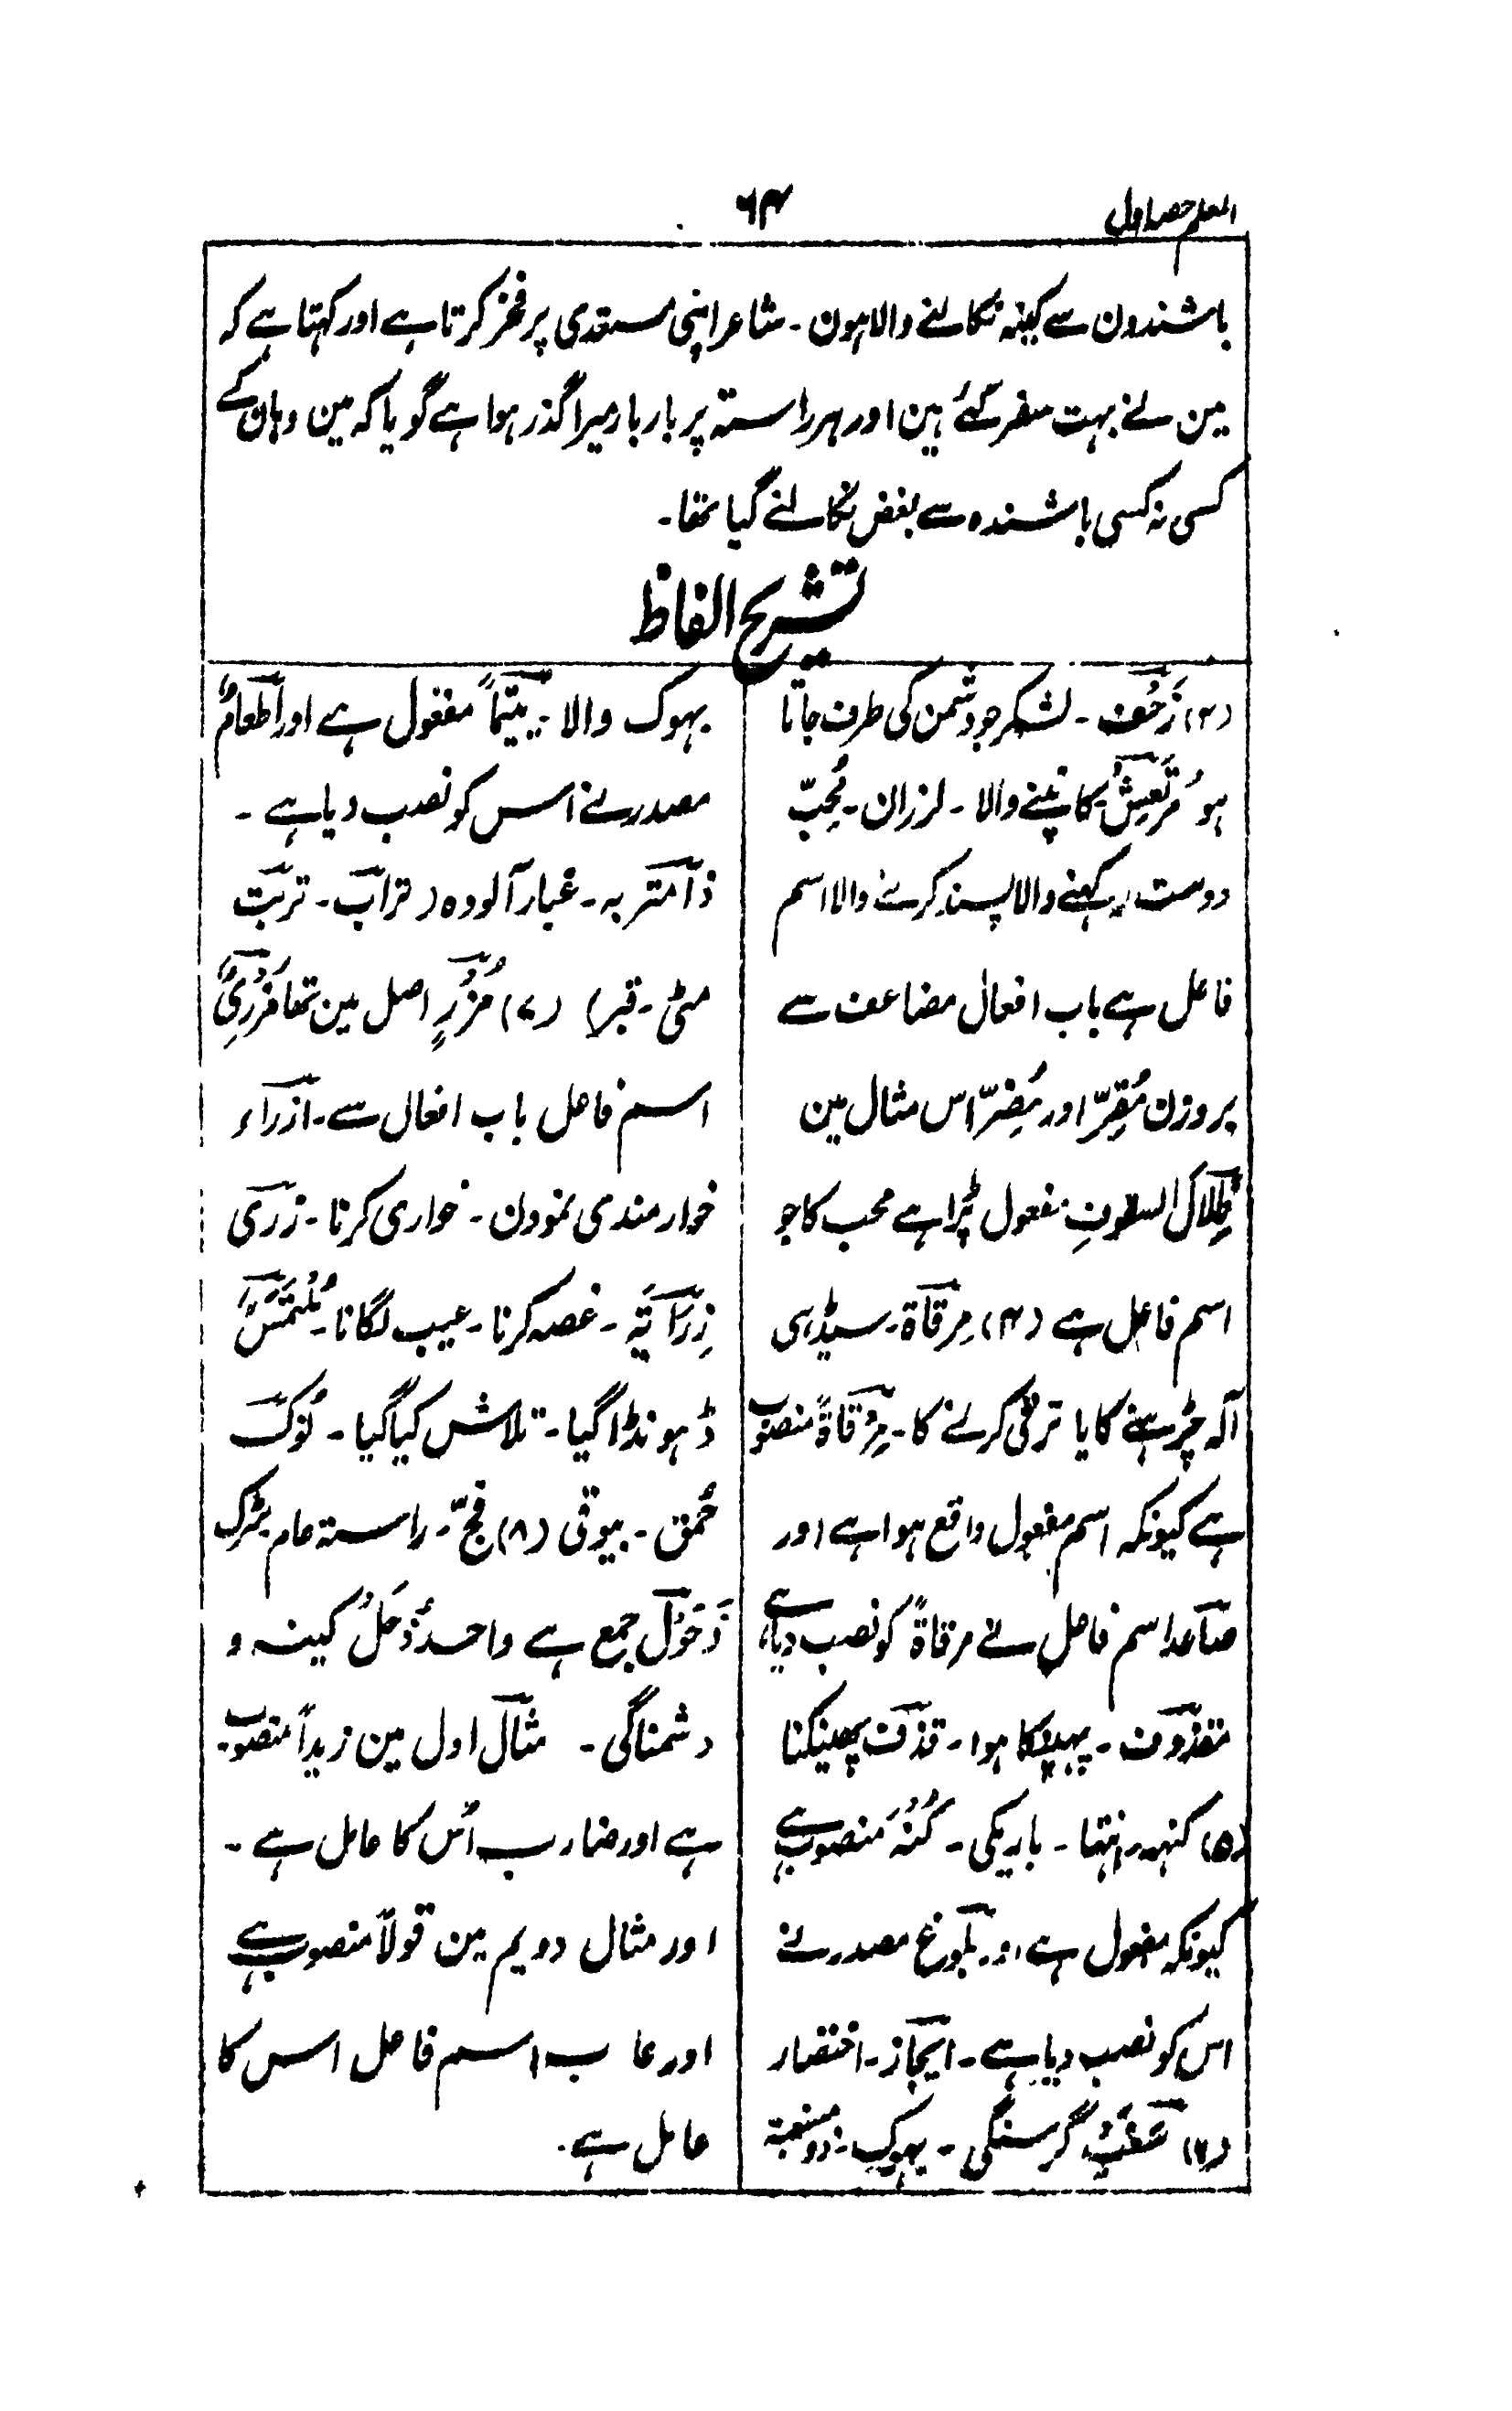 المعلم حصہ اول
۶۴
باشندون سے کینہ نکالنے والا ہون۔ شاعر اپنی مستعدی پر فخر کرتا ہے اور کہتا ہے کہ
مین نے بہت سفر کئے ہین اور ہر راستہ پر بار بار میرا گذر ہوا ہے گویا کہ مین وہان کے
کسی نہ کسی باشندہ سے بغض نکالنے گیا تھا۔
تشریح الفاظ
زَحُف۔ لشکر جو دشمن کی طرف جاتا
ہو مُرتَعِشٌ کانپنے والا۔ لرزان۔ مُحِبّ
دوست رکہنے والا پسند کرنے والا اسم
فاعل ہے باب افعال مضاعف سے
پر وزن مُقِرّ اور مُضِرّ اس مثال مین
مفعول پڑا ہے محب کا جو
اسم فاعل ہے (۴) مِرقاۃ۔ سیڈہی
آلہ چڑہنے کا یا ترقی کرنے کا۔ مِرْقاۃً منصوب
ہے کیونکہ اسم مفعول واقع ہوا ہے اور
صاعد اسم فاعل نے مرقاۃً کو نصب دیا ہے،
مقذوف۔ پہینکا ہوا۔ قذف پھینکنا
(۵) کنہہ۔ انتہا۔ باریکی۔ کُنْہَ منصوب ہے
کیونکہ مفعول ہے اور بلوغ مصدر نے
اس کو نصب دیا ہے۔ ایجاز۔ اختصار
(۶) سَغَبٌ گرسنگی۔ بہوک۔ ذو مسغبۃ
بہوک والا۔ یتیماً مفعول ہے اور اطعامٌ
مصدر نے اس کو نصب دیا ہے۔
ذا متربہ۔ غبار آلودہ (تراب۔ تربت
مٹی۔ قبر) (۷) مُزْرٍ اصل مین تھا مُزْرِیٌ
اسم فاعل باب افعال سے۔ ازراء
خوارمندی نمودن۔ خواری کرنا۔ زری
زِرَایَۃ۔ غصہ کرنا۔ عیب لگانا۔ مُلْتَمَسٌ
ڈہونڈا گیا۔ تلاش کیا گیا۔ نُوک
حُمق۔ بیوقی (۸) فجّ۔ راستہ عام سڑک
ذَحَوُل جمع ہے واحد ذَحلٌ کینہ و
دشمناگی۔ مثال اول مین زیداً منصوب
ہے اور ضارب اُس کا عامل ہے۔
اور مثال دویم مین قولاً منصوب ہے
اور عاب اسم فاعل اس کا
عامل ہے۔